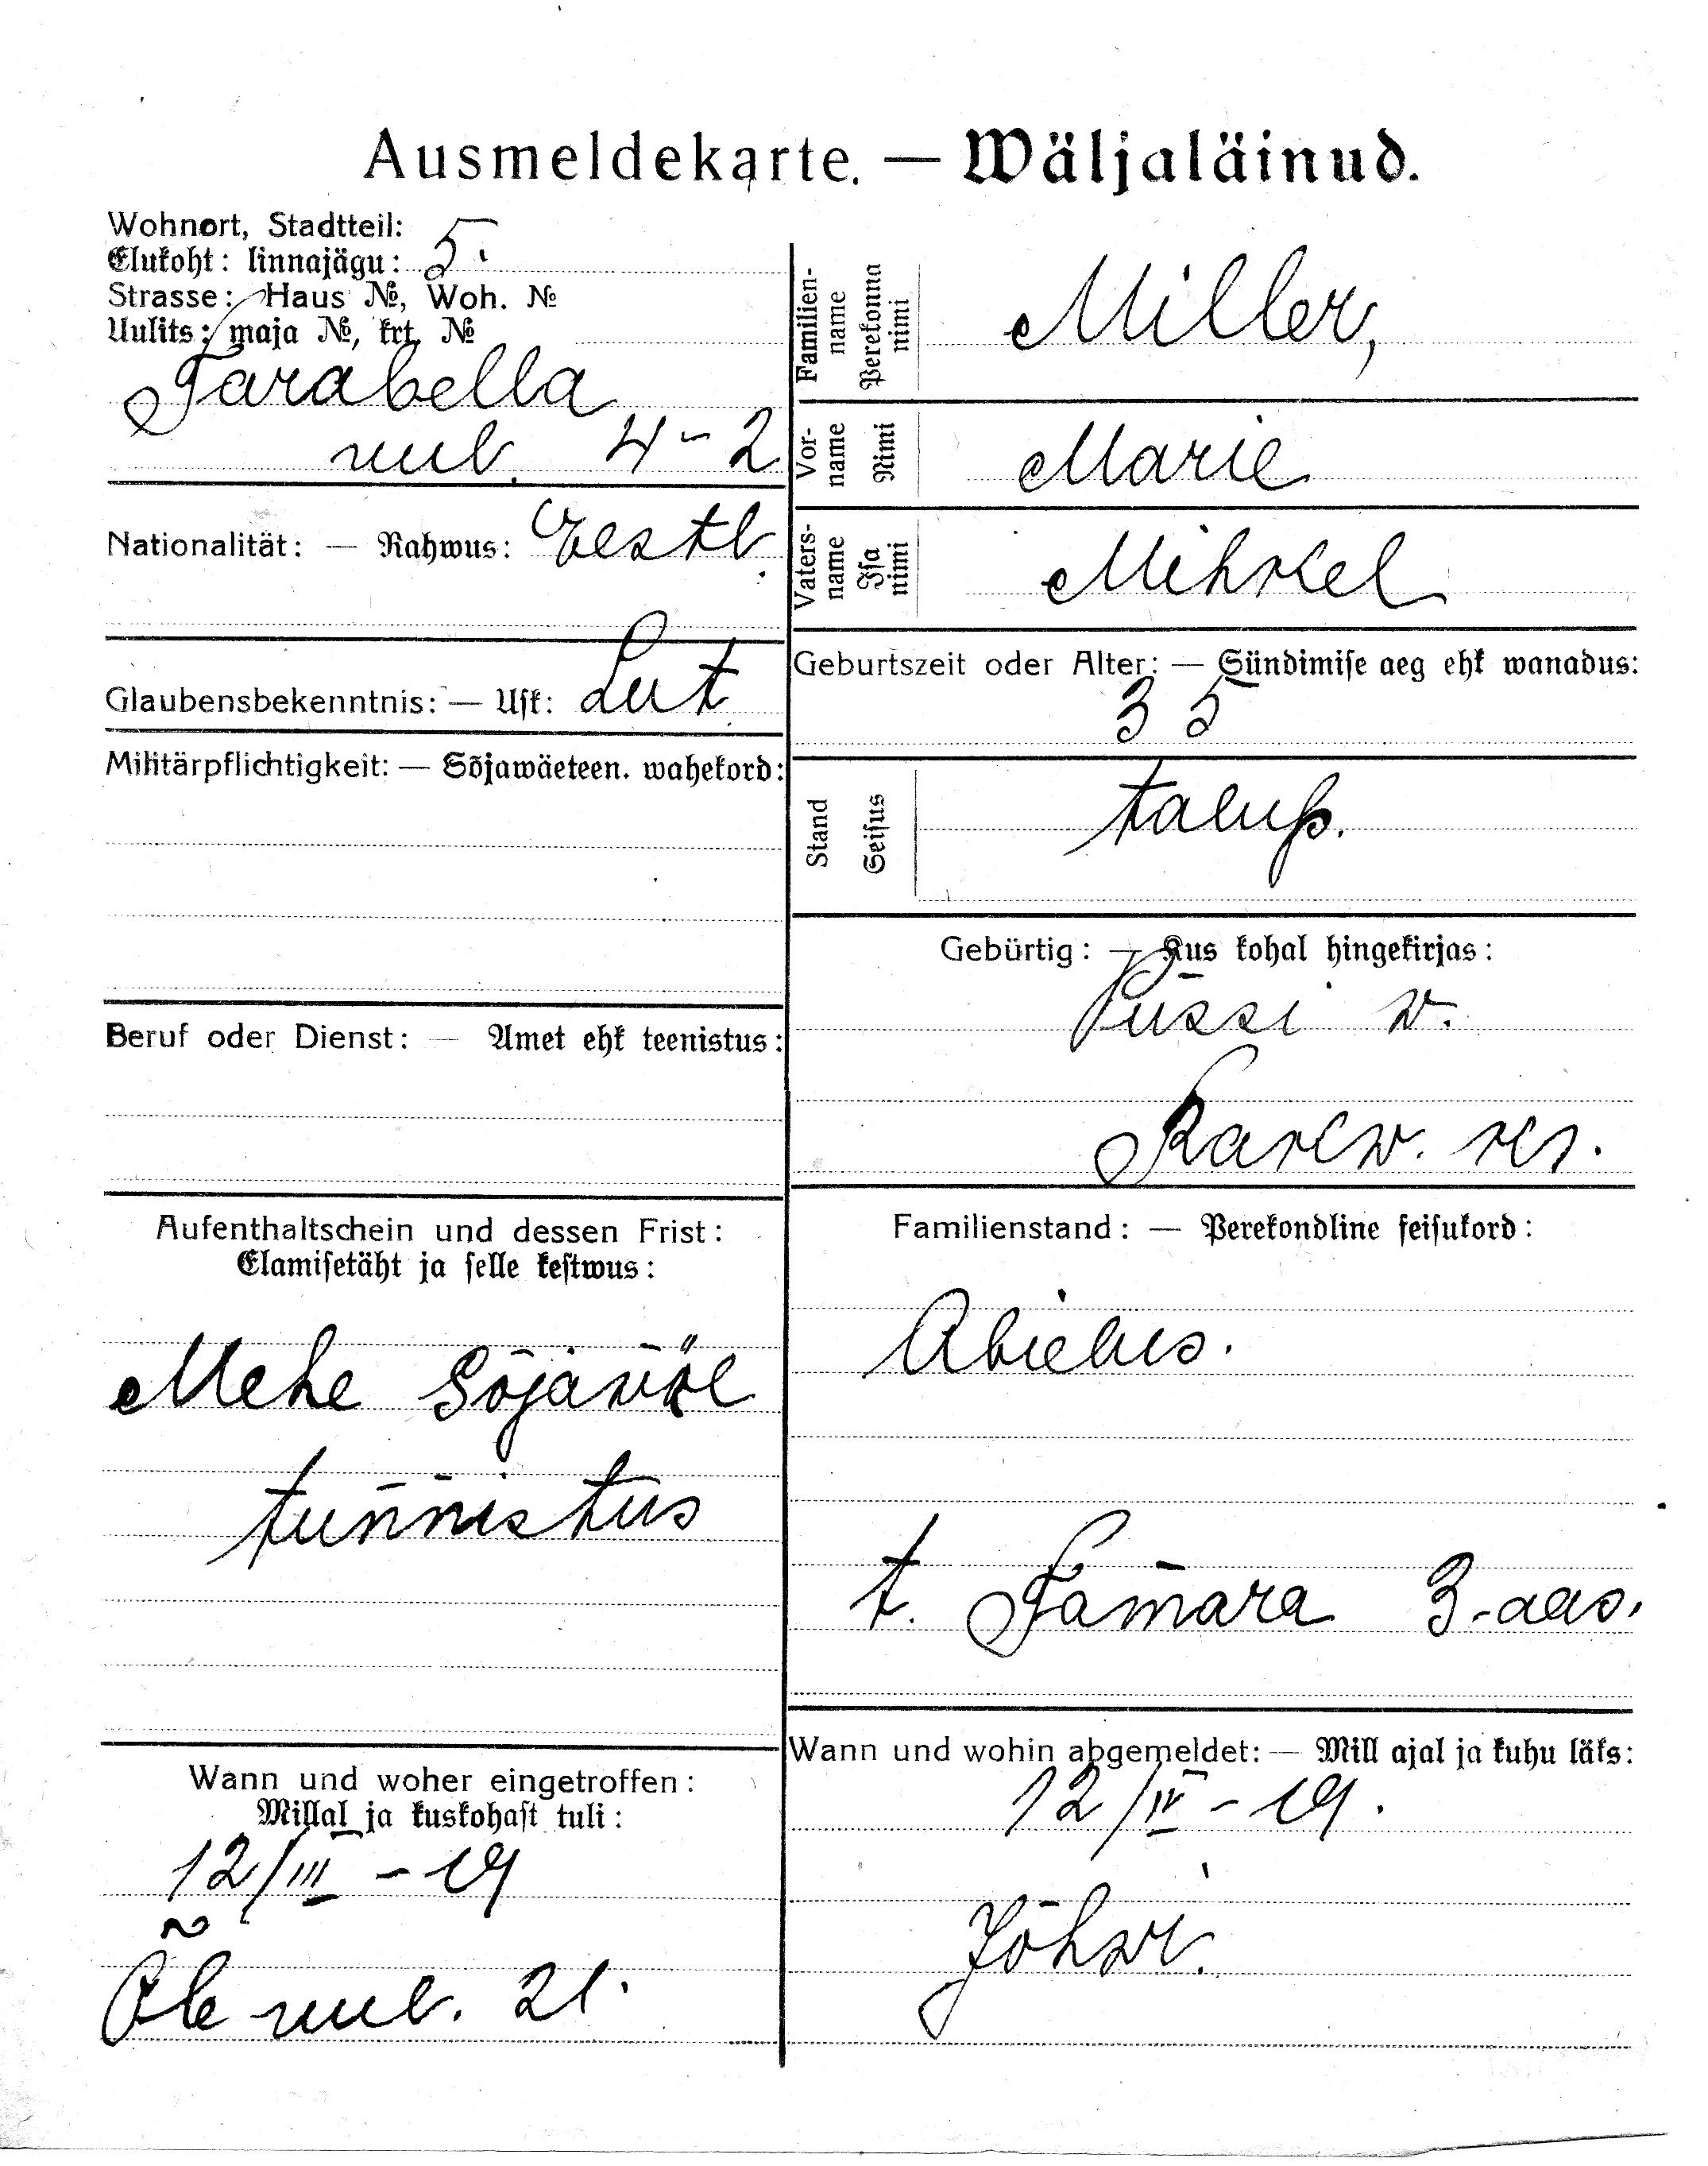 Ausmeldekarte. — Wäljaläinud.
Wohnort, Stadtteil:
Elukoht: linnajägu: 5.
Strasse: Haus №, Woh. №
Uulits: maja №, krt. №
Tarabella
uul. 4-2
Nationalität: — Rahwus: Eestl.
Glaubensbekenntnis: — Usk: Lut.
Militärpflichtigkeit: — Sõjawäeteen. wahekord:
Beruf oder Dienst: — Amet ehk teenistus:
Aufenthaltschein und dessen Frist:
Elamisetäht ja selle kestwus:
Mehe Sõjaväe
tunnistus
Wann und woher eingetroffen:
Millal ja kuskohast tuli:
12/III - 19
Õle uul. 21.
Familien-
name
Perekonna
nimi
Miller,
Vor-
name
Nimi
Marie
Vaters-
name
Isa
nimi
Mihkel
Geburtszeit oder Alter: — Sündimise aeg ehk wanadus:
35
Stand
Seisus
talup.
Gebürtig: — Kus kohal hingekirjas:
Püssi w.
kr.
Familienstand: — Perekondline seisukord:
Abielus.
t. Tamara 3-aas.
Wann und wohin abgemeldet: — Mill ajal ja kuhu läks:
12/IV - 19.
Jõhwi.